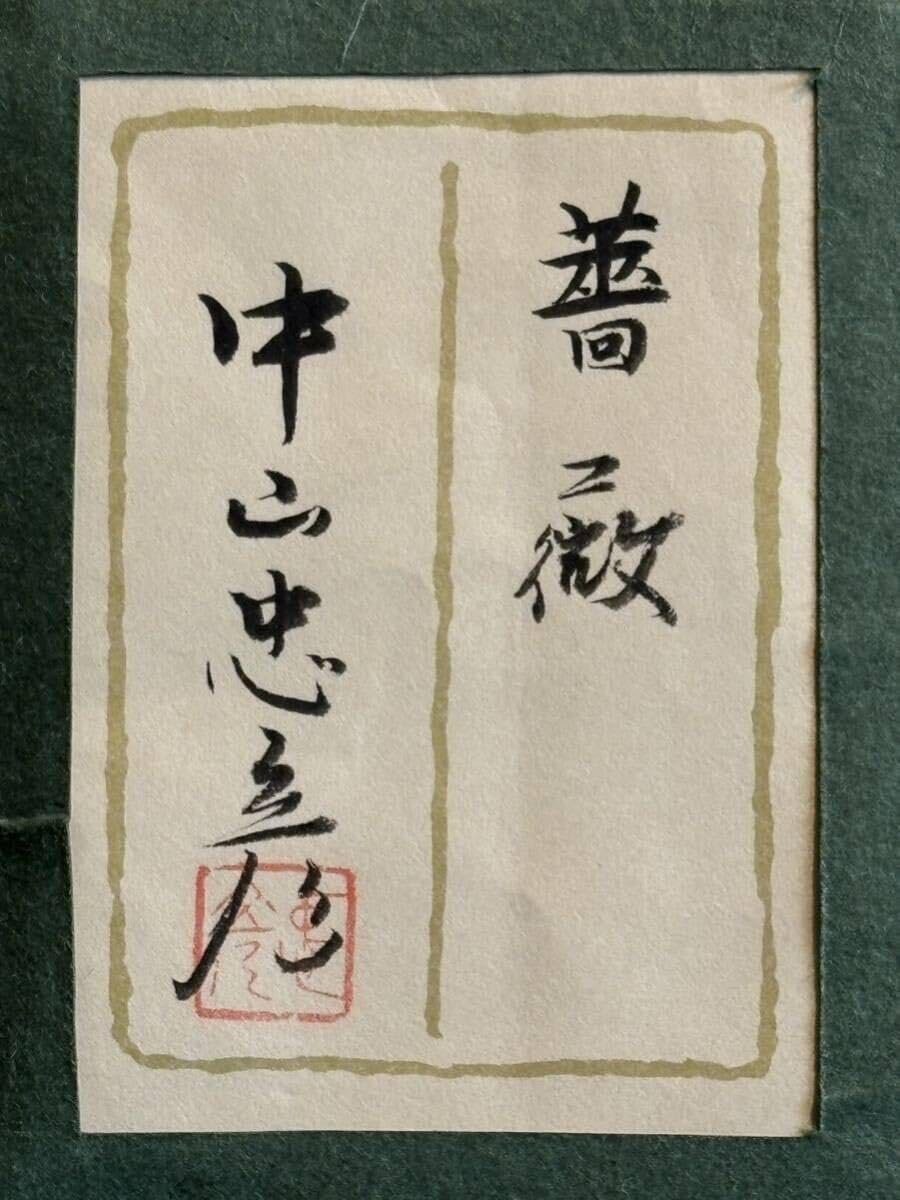 薔薇
中山忠彦